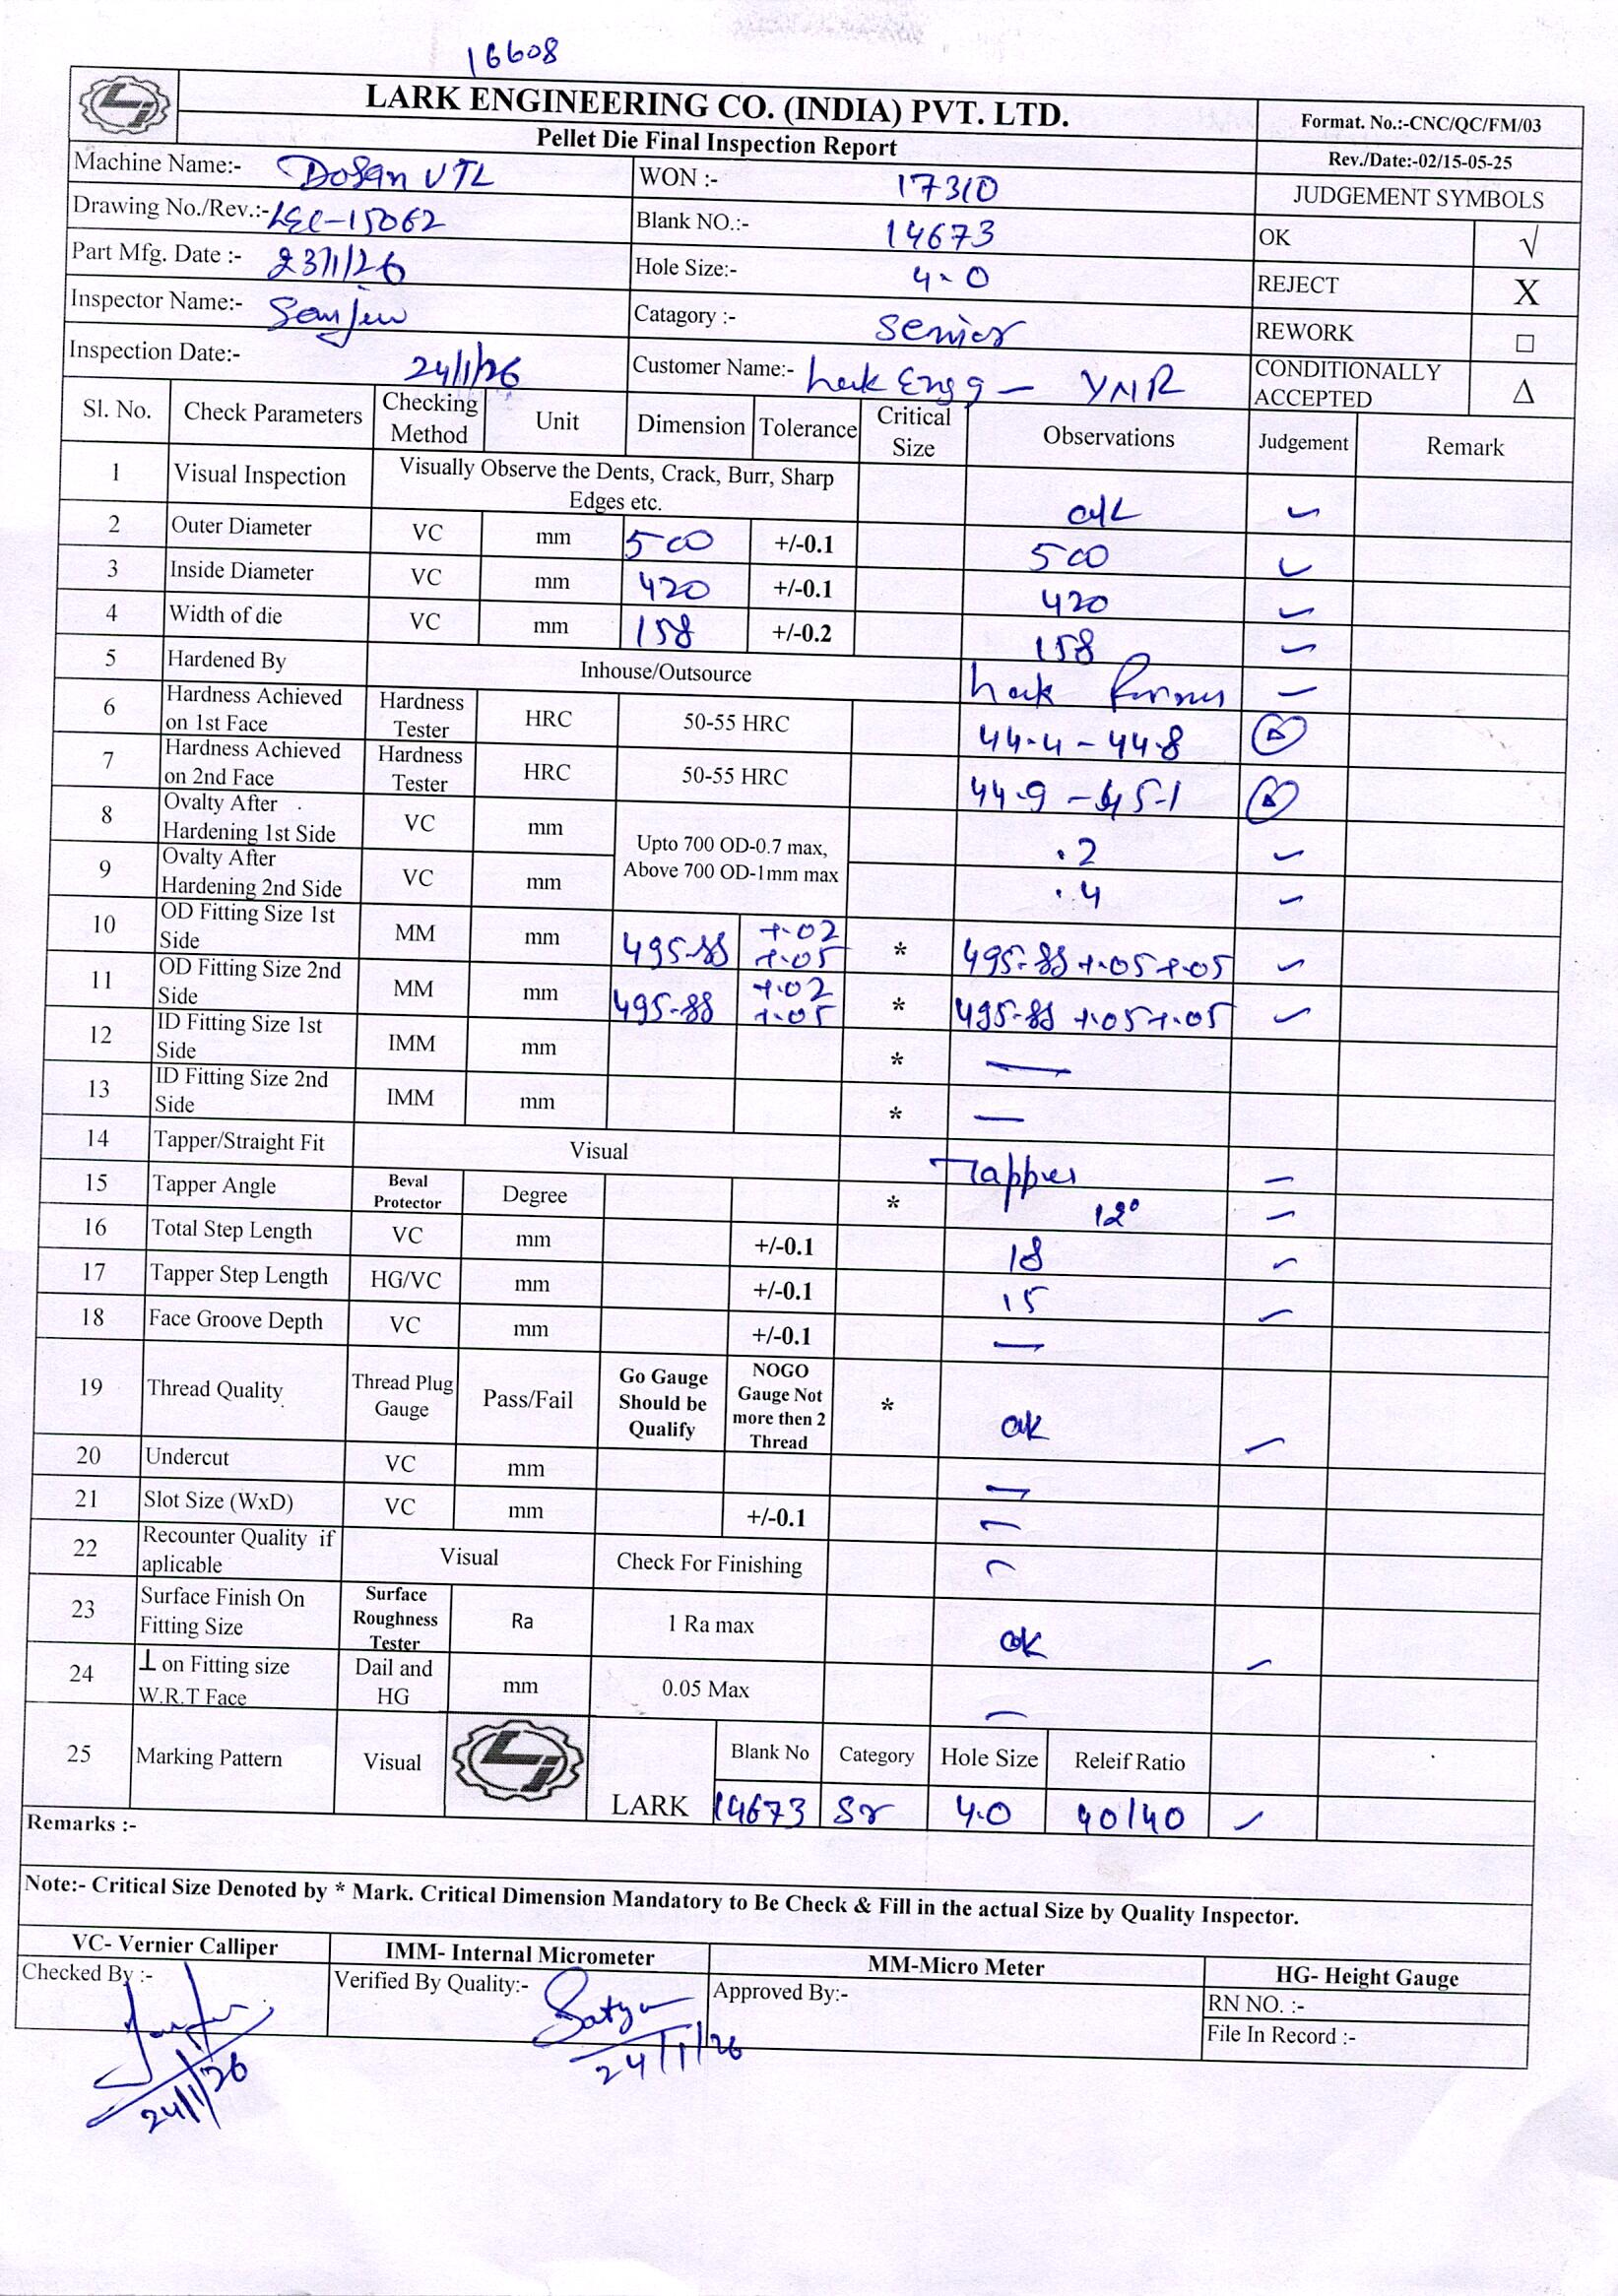 16608
LARK ENGINEERING CO. (INDIA) PVT. LTD.
Pellet Die Final Inspection Report
Format. No.:-CNC/QC/FM/03
Rev./Date:-02/15-05-25
Machine Name:- Dosan VTL WON :- 17310 JUDGEMENT SYMBOLS
Drawing No./Rev.:- LEC-15062 Blank NO.:- 14673 OK √
Part Mfg. Date :- 23/1/26 Hole Size:- 4.0 REJECT X
Inspector Name:- Sanjeev Catagory :- Senior REWORK □
Inspection Date:- 24/1/26 Customer Name:- Lark Engg - YNR CONDITIONALLY ACCEPTED Δ
Sl. No. Check Parameters Checking Method Unit Dimension Tolerance Critical Size Observations Judgement Remark
1 Visual Inspection Visually Observe the Dents, Crack, Burr, Sharp Edges etc. ok ✓
2 Outer Diameter VC mm 500 +/-0.1 500 ✓
3 Inside Diameter VC mm 420 +/-0.1 420 ✓
4 Width of die VC mm 158 +/-0.2 158 ✓
5 Hardened By Inhouse/Outsource Lark ✓
6 Hardness Achieved on 1st Face Hardness Tester HRC 50-55 HRC 44.4 - 44.8 Δ
7 Hardness Achieved on 2nd Face Hardness Tester HRC 50-55 HRC 44.9 - 45.1 Δ
8 Ovalty After Hardening 1st Side VC mm Upto 700 OD-0.7 max, Above 700 OD-1mm max .2 ✓
9 Ovalty After Hardening 2nd Side VC mm .4 ✓
10 OD Fitting Size 1st Side MM mm 495.88 +.02 +.05 * 495.88 +.05 +.05 ✓
11 OD Fitting Size 2nd Side MM mm 495.88 +.02 +.05 * 495.88 +.05 +.05 ✓
12 ID Fitting Size 1st Side IMM mm * —
13 ID Fitting Size 2nd Side IMM mm * —
14 Tapper/Straight Fit Visual Tapper ✓
15 Tapper Angle Beval Protector Degree * 12° ✓
16 Total Step Length VC mm +/-0.1 18 ✓
17 Tapper Step Length HG/VC mm +/-0.1 15 ✓
18 Face Groove Depth VC mm +/-0.1 —
19 Thread Quality Thread Plug Gauge Pass/Fail Go Gauge Should be Qualify NOGO Gauge Not more then 2 Thread * ok ✓
20 Undercut VC mm —
21 Slot Size (WxD) VC mm +/-0.1 —
22 Recounter Quality if aplicable Visual Check For Finishing —
23 Surface Finish On Fitting Size Surface Roughness Tester Ra 1 Ra max ok ✓
24 ⊥ on Fitting size W.R.T Face Dail and HG mm 0.05 Max —
25 Marking Pattern Visual LARK Blank No Category Hole Size Releif Ratio
14673 Sr 4.0 40/40 ✓
Remarks :-
Note:- Critical Size Denoted by * Mark. Critical Dimension Mandatory to Be Check & Fill in the actual Size by Quality Inspector.
VC- Vernier Calliper IMM- Internal Micrometer MM-Micro Meter HG- Height Gauge
Checked By :- Verified By Quality:- Satya Approved By:- RN NO. :-
File In Record :-
24/1/26 24/1/26